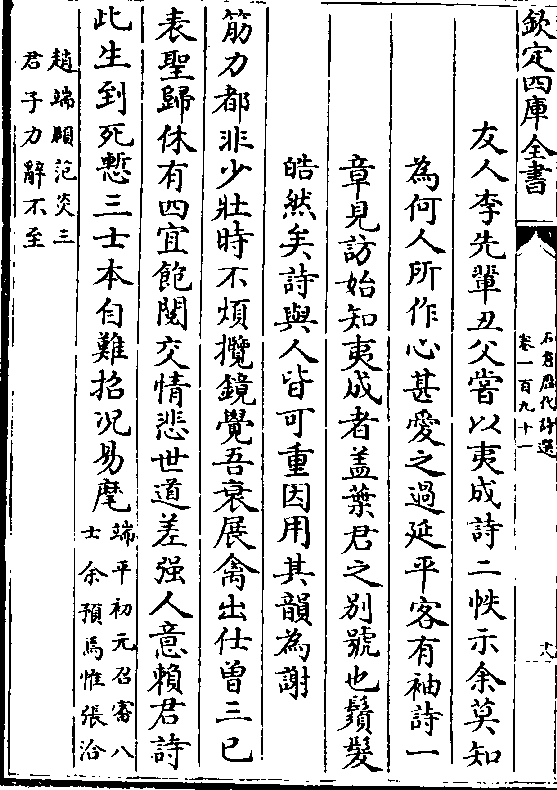 欽定四庫全書
石倉歷代詩選
卷一百九十一
友人李先輩丑父嘗以夷成詩二帙示余莫知
為何人所作心甚愛之過延平客有袖詩一
章見訪始知夷成者盖葉君之别號也鬚髮
皓然矣詩與人皆可重因用其韻為謝
筋力都非少壯時不煩攬鏡覺吾衰展禽出仕曾三已
表聖歸休有四宜飽閱交情悲世道差强人意賴君詩
此生到死慙三士本自難招況易麾
端平初元召審八
士余預焉惟張洽
趙端頤范炎三
君子力辭不至